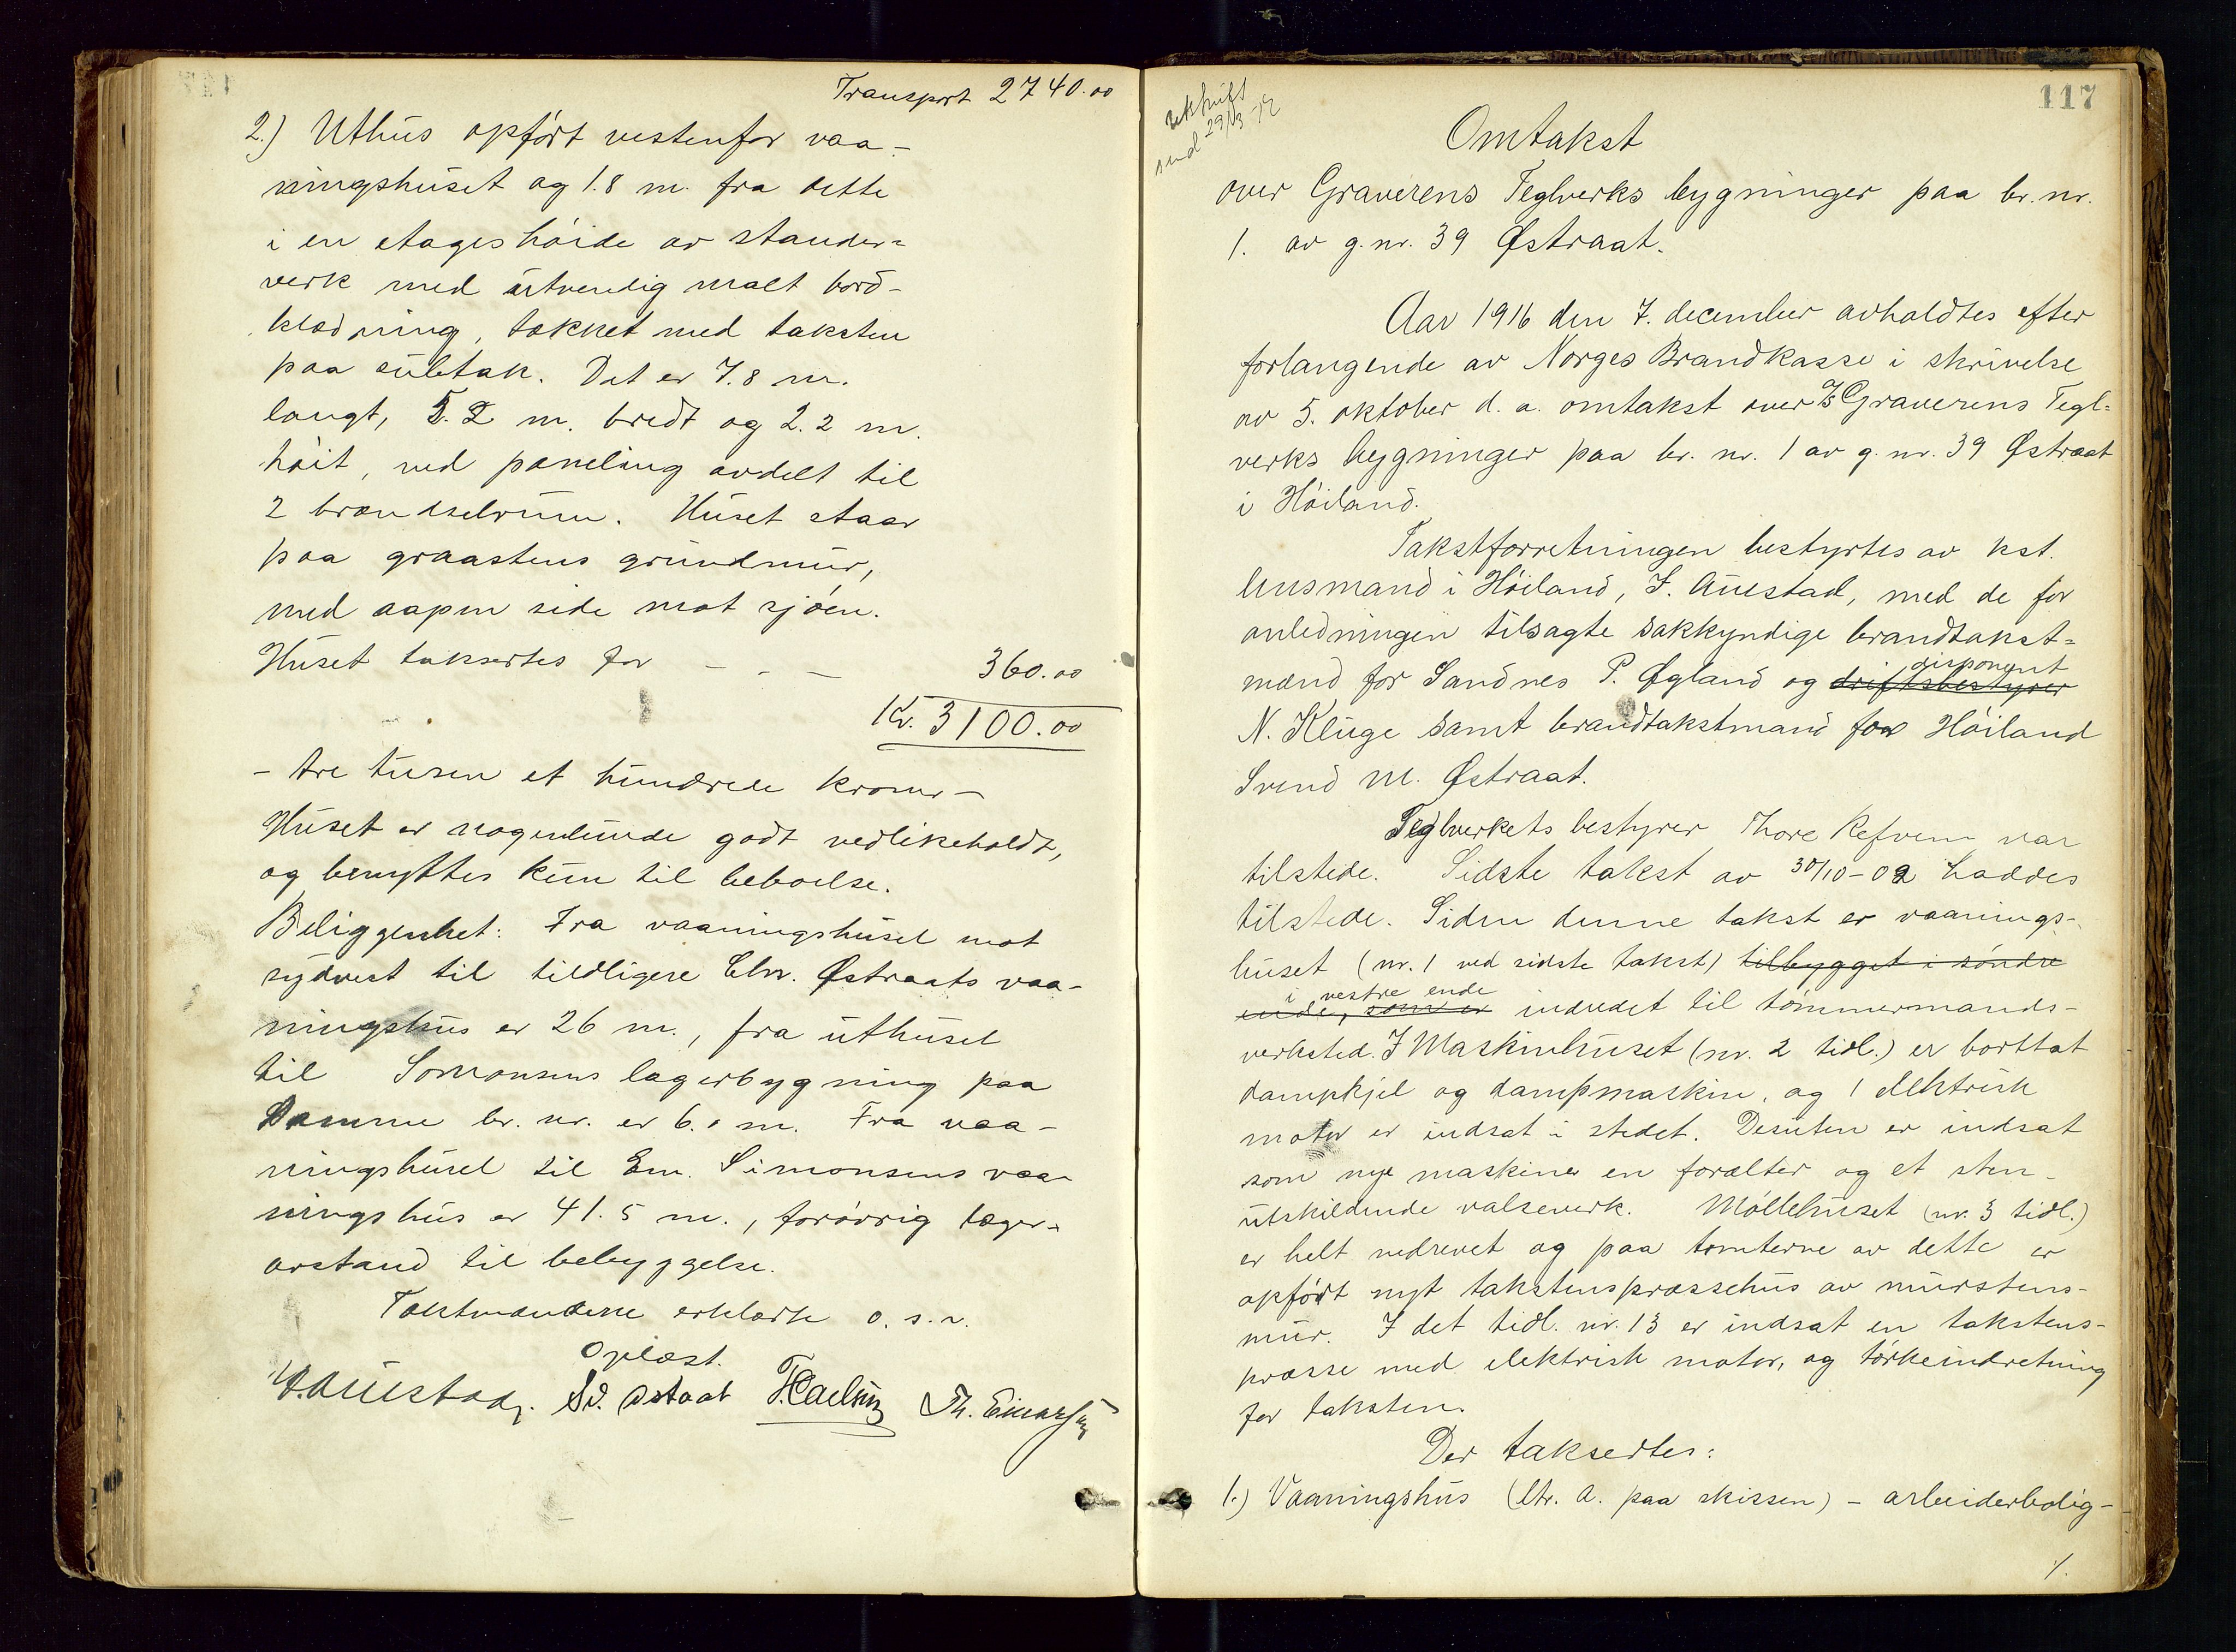 Transport 2740.00
2.) Uthus opført vestenfor vaa-
ningshuset og 1.8 m. fra dette
i en etages høide av stander-
verk med utvendig malt bord-
klædning, tækket med taksten
paa sutak. Det er 7.8 m.
langt, 5.2 m. bredt og 2.2 m.
høit, ved paneling avdelt til
2 brændselrum. Huset staar
paa graastens grundmur,
med aapen side mot sjøen.
Huset taksertes for - - - 360.00
Kr. 3100.00
- tre tusen et hundrede kroner -
Huset er nogenlunde godt vedlikeholdt,
og benyttes kun til beboelse.
Beliggenhet: Fra vaaningshuset mot
sydvest til tidligere Chr. Østraats vaa-
ningshus er 26 m., fra uthuset
til Somonsens lagerbygning paa
samme br. nr. er 6.0 m. Fra vaa-
ningshuset til Em. Simonsens vaa-
ningshus er 41.5 m., forøvrig læger-
avstand til bebyggelse.
Takstmændene erklærte o. s. v.
Oplæst.
Auestad. Sv. Østraat Th. Einarsen
117
utskrift
send 29/3-17
Omtakst
over Graverens Teglverks bygninger paa br. nr.
1. av g. nr. 39 Østraat.
Aar 1916 den 7. december avholdtes efter
forlangende av Norges Brandkasse i skrivelse
av 5. oktober d. a. omtakst over I/S Graverens Tegl-
verks bygninger paa br. nr. 1 av g. nr. 39 Østraat
i Høiland.
Takstforretningen bestyrtes av kst.
lensmand i Høiland, I. Auestad, med de for
anledningen tilsagte sakkyndige brandtakst-
mænd for Sandnes P. Øgland og driftsbestyrer disponent
N. Kluge samt brandtakstmand for Høiland
Svend M. Østraat.
Teglverkets bestyrer Thore Refvem var
tilstede. Sidste takst av 30/10-02 haddes
tilstede. Siden denne takst er vaanings-
huset (nr. 1 ved sidste takst) tilbygget i søndre
ende, som er i vestre ende indredet til tømmermands-
verksted. I Maskinhuset (nr. 2 tidl.) er borttat
dampkjel og dampmaskin, og 1 elektrisk
motor er indsat i stedet. Desuten er indsat
som nye maskiner en forælter og et sten-
utskildende valseverk. Møllehuset (nr. 3 tidl.)
er helt nedrevet og paa tomterne av dette er
opført nyt takstenspressehus av murstens-
mur. I det tidl. nr. 13 er indsat en takstens-
presse med elektrisk motor, og tørkeindretning
for taksten.
Der taksertes:
1.) Vaaningshus (ltr. a. paa skissen) - arbeiderbolig-
./.